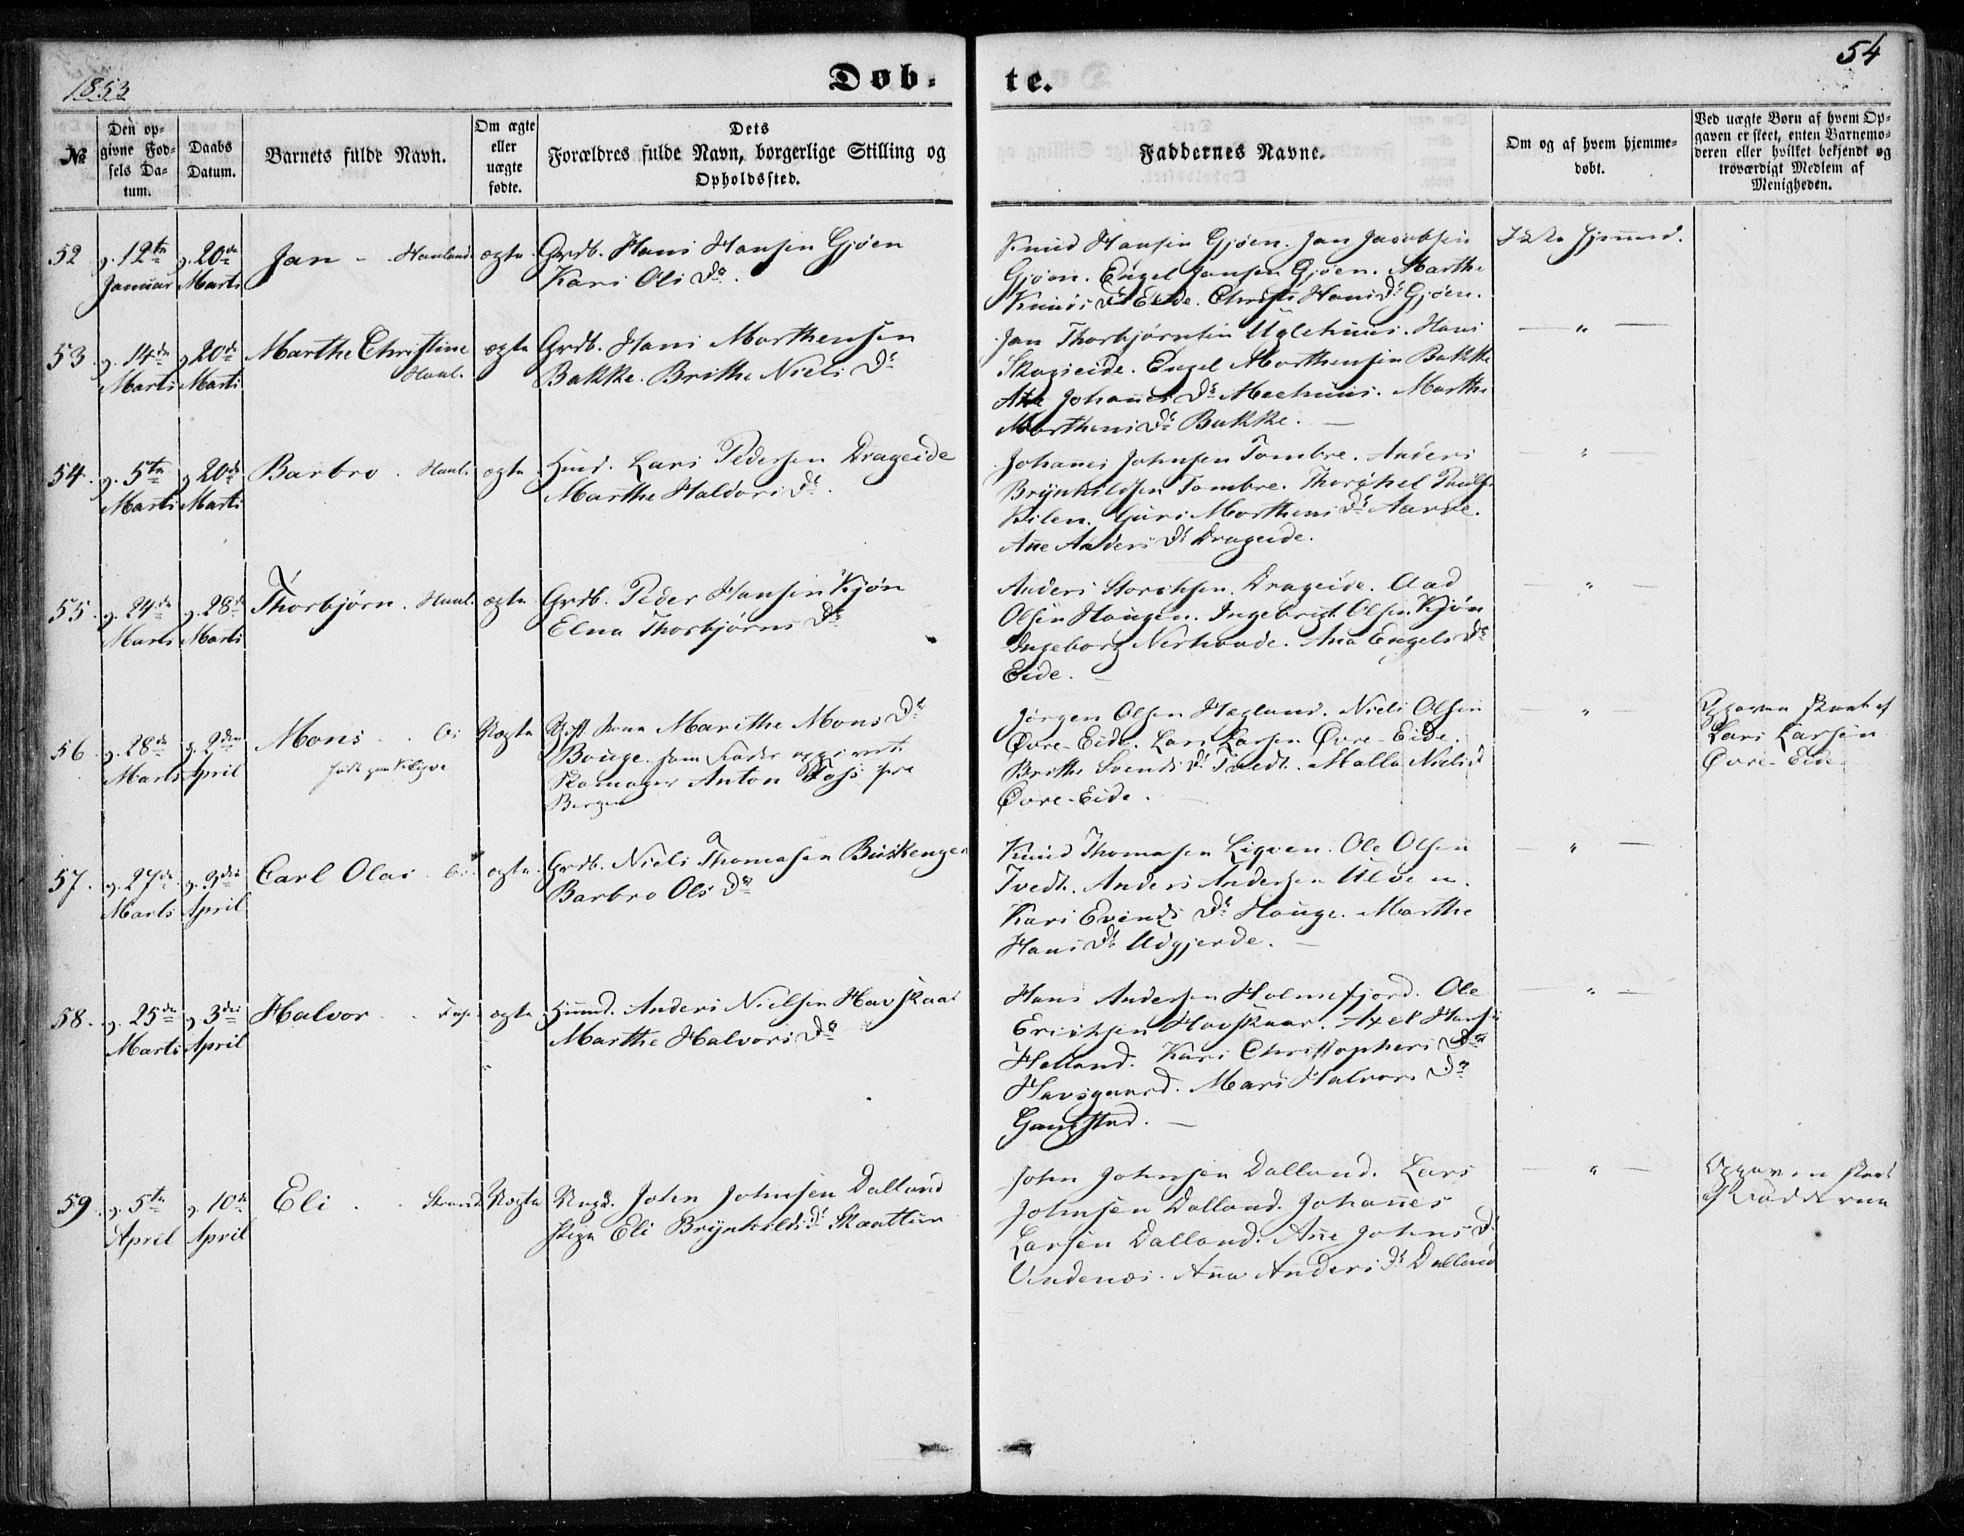 1853
Døb-
te.
54
№
Den op-
givne Fød-
sels Da-
tum.
Daabs
Datum.
Barnets fulde Navn.
Om ægte
eller
uægte
fødte.
Dets
Forældres fulde Navn, borgerlige Stilling og
Opholdssted.
Faddernes Navne.
Om og af hvem hjemme-
døbt.
Ved uægte Børn af hvem Op-
gaven er skeet, enten Barnemo-
deren eller hvilket bekjendt og
troværdigt Medlem af
Menigheden.
52 d. 12te d. 20de Jan - ægte Grdb. Hans Hansen Gjøen
Januar Marts Kari Ols Dr.
Knud Hansen Gjøen. Jan Jacobsen
Gjøen. Engel Jansen Gjøen. Marthe
Knuds Dr Eide. Christi Hans Dr Gjøen.
Ikke hjemmed.
53. d. 14de d. 20de Marthe Christine ægte Grdb. Hans Morthensen
Marts Marts Haul. Bakke. Brithe Niels Dr
Jan Thorbjørnsen Uglehuus. Hans
Skogseide. Engel Morthensen Bakke
Ane Johannes Dr Meehuus. Marthe
Morthens Dr Bakke. —
— " —
54. d. 5te d. 20de Barbro. Haul. ægte Huusm. Lars Pedersen Drageide
Marts Marts Marthe Haldors Dr.
Johannes Johnsen Tombre. Anders
Brynhildsen Tombre. Thorkel
Kilen. Guri Morthens Dr Aarre.
Ane Anders Dr Drageide.
— " —
55. d. 24de d. 28de Thorbjørn. Haul. ægte Grdb. Peder Hansen Kjøn
Marts Marts Elna Thorbjørns Dr
Anders Storksen. Drageide. Aad
Olsen Haugen. Ingebrigt Olsen Kjøn
Ingeborg Nershovde. Ana Engels Dr
Eide. —
— " —
56 d. 28de d. 2den Mons. Os Uægte Gift Kone Marithe Mons Dr
Marts April Bouge. som Fader opgivet
Skomager Anton Foss fra
Bergen
Jørgen Olsen Hegland. Niels Olsen
Øvre-Eide. Lars Larsen Øvre-Eide.
Brithe Svends Dr Tvedt. Malla Niels Dr
Øvre-Eide.
— " —
Opgaven skeet af
Lars Larsen
Øvre-Eide
57. d. 27de d. 3die Carl Olai. Os. ægte. Grdb. Niels Thomasen Buskenges
Marts April Barbro Ols Dr
Knud Thomasen Ligven. Ole Olsen
Tvedt. Anders Andersen Ulven.
Kari Evinds Dr Hauge. Marthe
Hans Dr Udgjerde. —
— " —
58. d. 25de d. 3die Halvor. . Fus. ægte Huusm. Anders Nielsen Havskaar
Marts April Marthe Halvors Dr
Hans Andersen Holmefjord. Ole
Ericksen Havskaar. Axel Hansen
Helland. Kari Christophers Dr
Havsgaard. Mari Halvors Dr
Gangstad. —
— " —
59. d. 5te d. 10de Eli . . Strand. Uægte Ungk. John Johnsen Dalland
April April Pige Eli Brynhilds Dr Skaattun
John Johnsen Dalland. Lars
Johnsen Dalland. Johannes
Larsen Dalland. Ane Johns Dr
Vindenæs. Ana Anders Dr Dalland
— " —
Opgaven skeet
af Fadderne